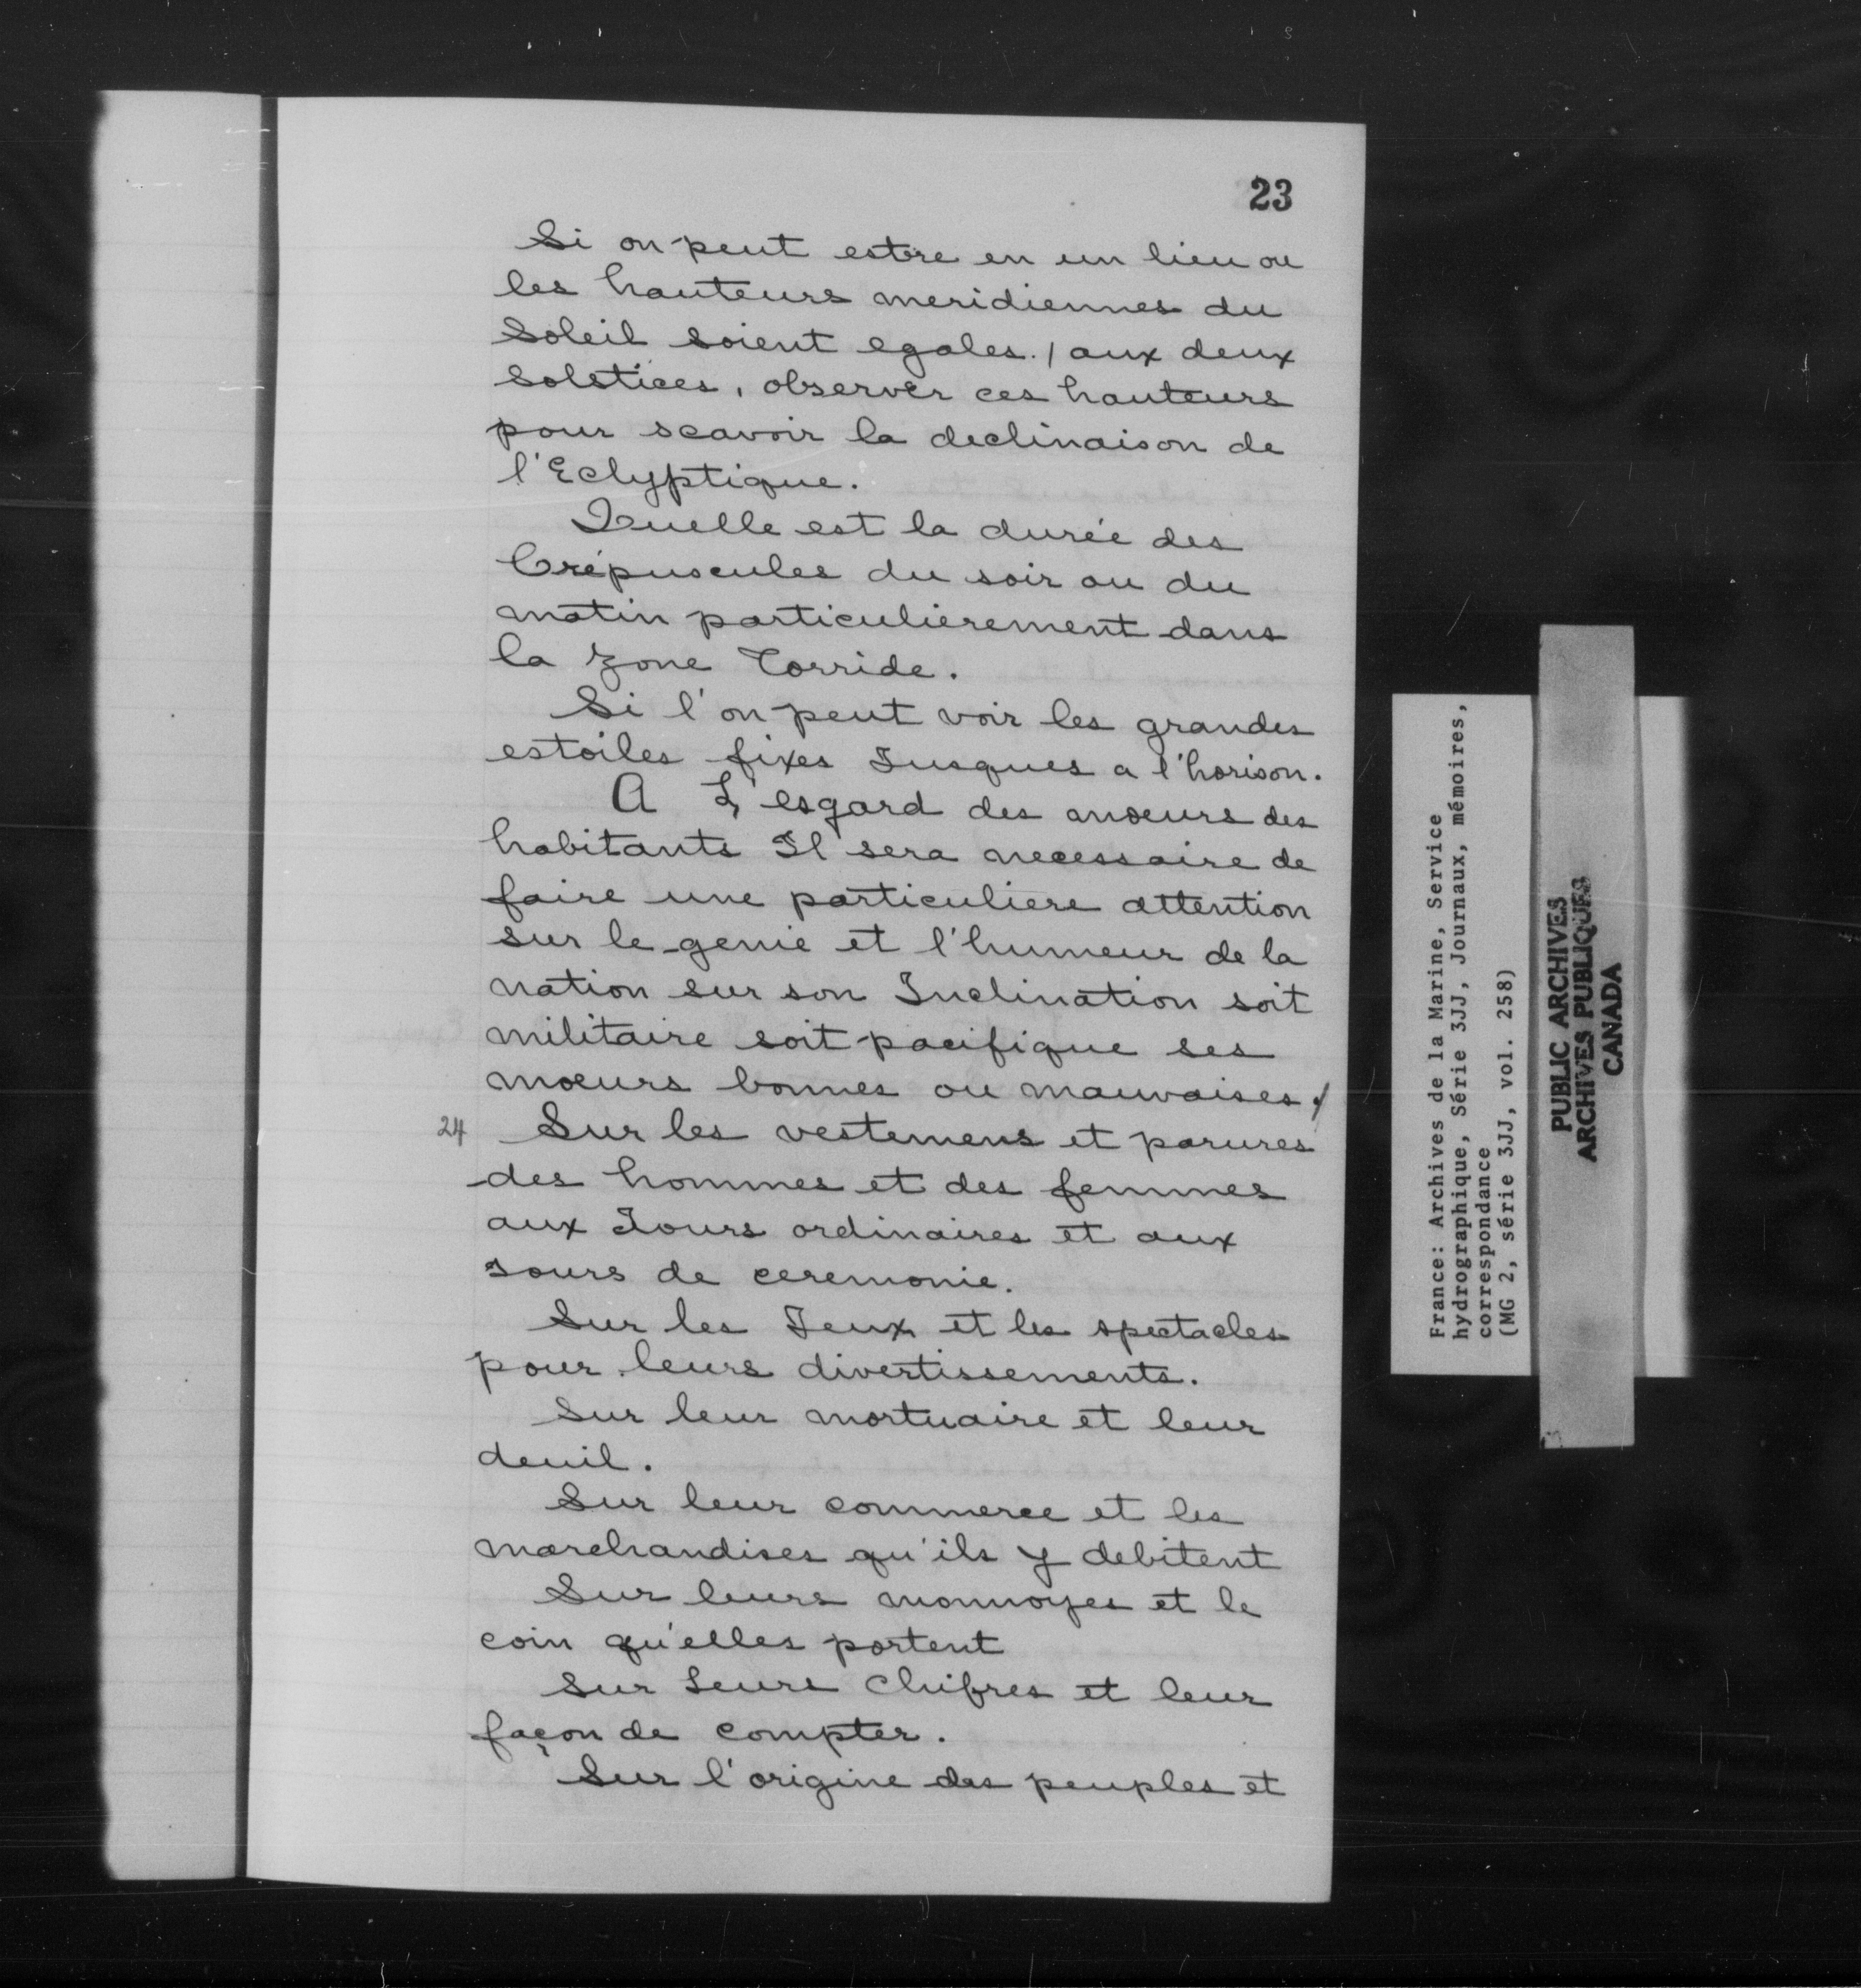 23
Si on peut estre en un lieu ou
les hauteurs meridiennes du
Soleil soient egales./ aux deux
Solstices, observer ces hauteurs
pour scavoir la declinaison de
l'Eclyptique.
Quelle est la durée des
Crépuscules du soir ou du
matin particulierement dans
la Zone Torride.
Si l'on peut voir les grandes
estoiles fixes Jusques a l'horison.
A L'esgard des moeurs des
habitants Il sera necessaire de
faire une particuliere attention
sur le genie et l'humeur de la
nation sur son Inclination soit
militaire soit pacifique ses
moeurs bonnes ou mauvaises./
24 Sur les vestemens et parures
des hommes et des femmes
aux Jours ordinaires et aux
Jours de ceremonie.
Sur les Jeux et les spectacles
pour leurs divertissements.
Sur leur mortuaire et leur
deuil.
Sur leur commerce et les
marchandises qu'ils y debitent
Sur leurs monnoyes et le
coin qu'elles portent
Sur Leurs Chifres et leur
façon de compter.
Sur l'origine des peuples et
France: Archives de la Marine, Service
hydrographique, Série 3JJ, Journaux, mémoires,
correspondance
(MG 2, série 3JJ, vol. 258)
PUBLIC ARCHIVES
ARCHIVES PUBLIQUES
CANADA